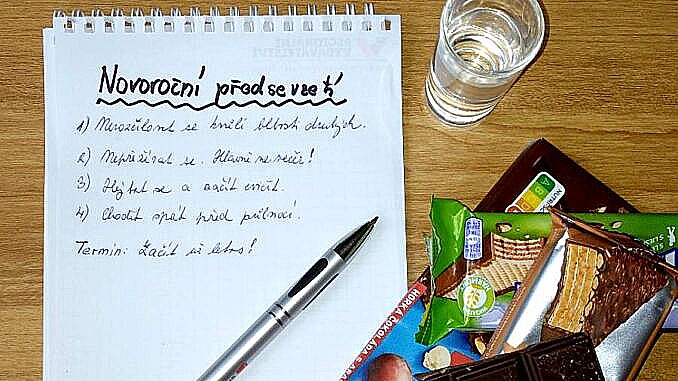 Novoroční předsevzetí
1) Nerozčilovat se kvůli blbosti druhých.
2) Nepřežírat se. Hlavně ne večer!
3) Hejbat se a začít cvičit.
4) Chodit spát před půlnocí.
Termín: Začít už letos!
HOŘKÁ ČOKOLÁDA S ARA